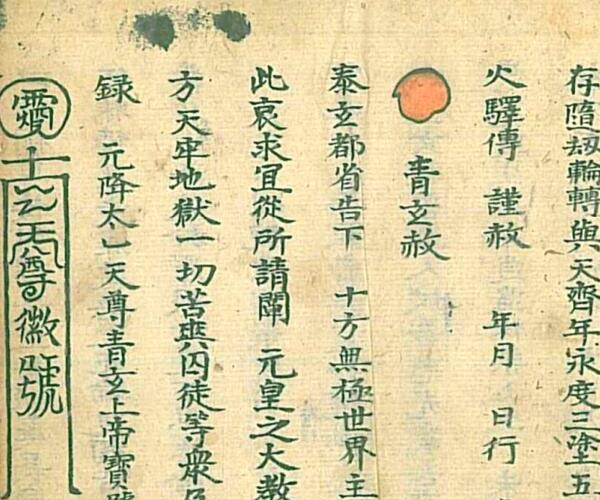 存隨劫輪轉與天齊年永度三塗五
火驛傳 謹赦 年月 日行
青玄赦
泰玄都省告下 十方無極世界主
此哀求宜從所請闡 元皇之大教
方天牢地獄一切苦爽囚徒等衆
録 元降太乚天尊青玄上帝寶號
天尊徽號